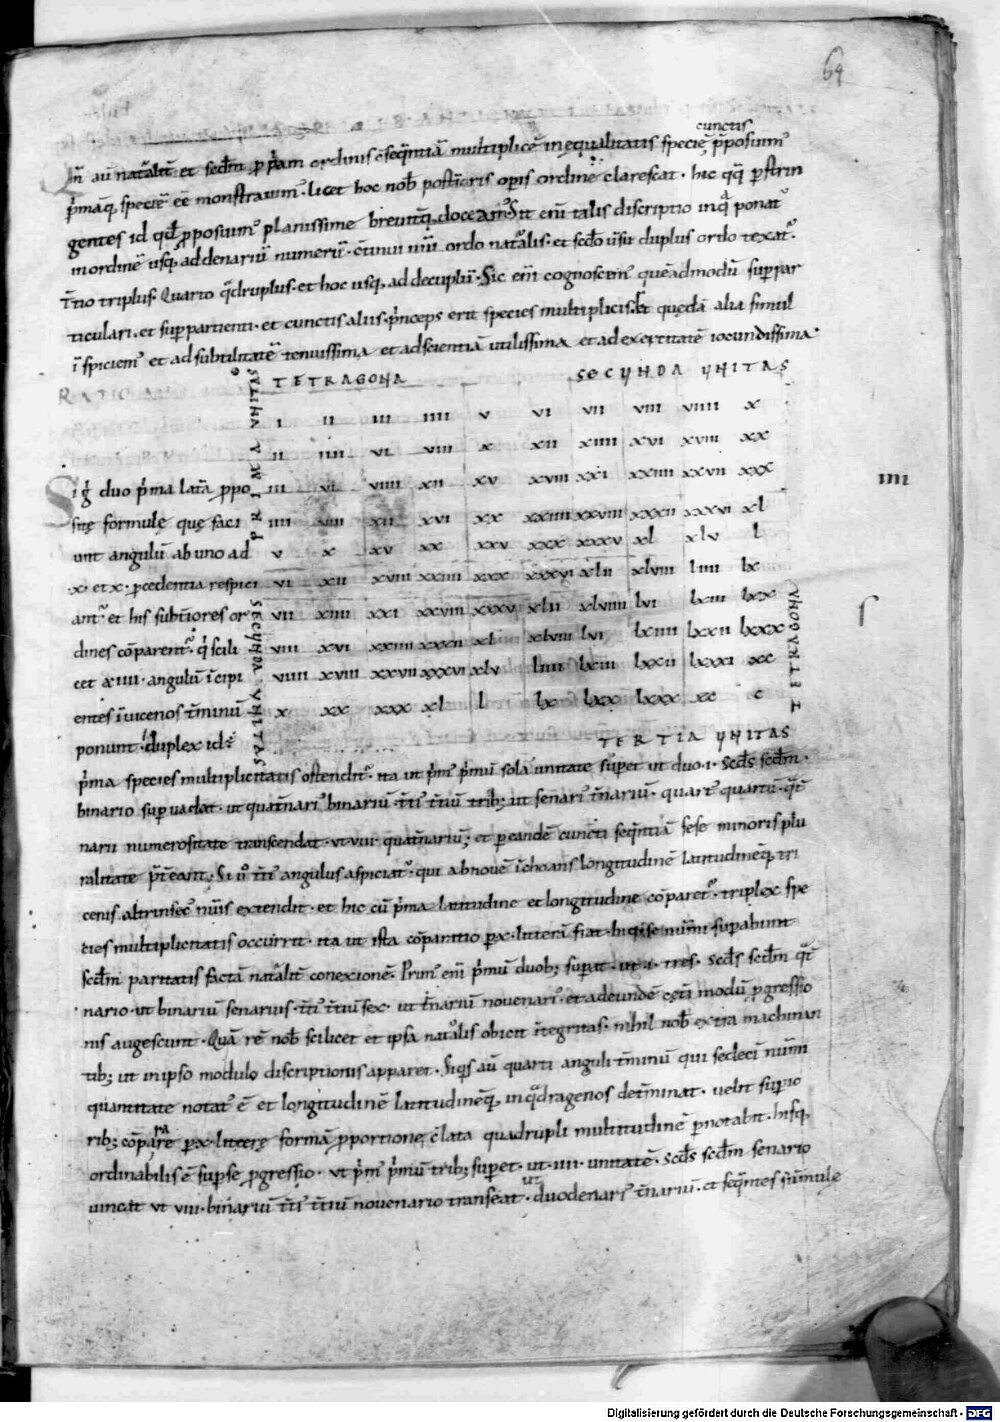 64
cunctis
Qm̄ aū natālit̄ et scdm̄ ꝓp̄am ordinis c̄seq̄ntiā multiplicē ineq̨ualitatis speciē p̄posuim᾽
p̄māq, speciē eē monstrauim᾽. licet hoc nob̄ post̄ioris op̄is ordine clarescat. hic q̄q̄ p̄strin
gentes id qd̄ ꝓposuim᾽ planissime breuit̄q, doceam᾽. Sit eni talis discriptio inq̄ ponat᾽
in ordinē usq, ad denariū numerū. c̄tinui num̄i ordo nat᾽alis. et scdo ūsu duplus ordo texat᾽.
T̄tio triplus. Quarto q̄druplus. et hoc usq, ad decuplū. Sic eni cognoscem᾽ quēadmodū suꝑpar
ticulari. et suꝑpartienti. et cunctis aliis. p̄nceps erit species multiplicis. Et quedā alia simul
ī spiciem᾽ et ad subtilitatē tenuissima et ad scientiā utilissima et ad exertitatē iocundissima.
RATIO
TETRAGONA SECUNDA UNITAS
PRIMA UNITAS
I II III IIII V VI VII VIII VIIII X
II IIII VI VIII X XII XIIII XVI XVIII XX
III VI VIIII XII XV XVIII XXI XXIIII XXVII XXX
IIII VIII XII XVI XX XXIIII XXVIII XXXII XXXVI XL
V X XV XX XXV XXX XXXV XL XLV L
VI XII XVIII XXIIII XXX XXXVI XLII XLVIII LIIII LX
VII XIIII XXI XXVIII XXXV XLII XLVIIII LVI LXIII LXX
VIII XVI XXIIII XXXII XL XLVIII LVI LXIIII LXXII LXXX
VIIII XVIII XXVII XXXVI XLV LIIII LXIII LXXII LXXXI XC
X XX XXX XL L LX LXX LXXX XC C
SECUNDA UNITAS
TETRAGONA
TERTIA UNITAS
Si ḡ duo p̄ma latā ꝓpo
sitę formulę quę faci
unt angulū ab uno ad
.x. et x. ꝓcedentia respici
ant᾽ et his subt̄iores or
dines cōparent᾽. q̄ scili
cet a IIII. angulū īcipi
entes ī uicenos t̄minū
ponunt. duplex id ē
p̄ma species multiplicitatis ostendit᾽. ita ut p̄m᾽ p̄mū sola unitate suꝑet ut duo .I. scds̄ scdm̄.
binario suꝑuadat. ut quat̄nari᾽ binariū. T̄ti᾽ t̄tiū trib; ut senari᾽ t̄nariū. quart᾽ quartū. q̄t̄
narii numerositate transcendat. ut VIII. quat̄nariū; et ꝑ eandē cuncti seq̄ntiā sese minoris plu
ralitate p̄t̄eant. Si u᾽ t̄ti᾽ angulus aspiciat᾽. qui ab nouē īchoans longitudinē latitudinēq, tri
cenis altrinsec᾽ num̄is extendit. et hic cū p̄ma latitudine et longitudine cōparet᾽. triplex spe
cies multiplicitatis occurrit. ita ut ista cōparatio ꝑ x. litterā fiat. hiq, se num̄i suꝑabunt
scdm̄ paritatis factā nat᾽alit̄ conexionē. Prim᾽ eni p̄mū duob; suꝑat. ut .I. tres. scds̄ scdm̄ q̄t̄
nario. ut binariū senarius. T̄ti᾽ t̄tiū sex. ut t̄nariū nouenari᾽. et ad eundē cet̄i modū ꝓgressio
nis augescunt. Quā rē nob̄ scilicet et ipsa nat᾽alis obicit īt̄egritas. nihil nob̄ extra machinan
tib; ut in ipso modulo discriptionis apparet. Siq̄s aū quarti anguli t̄minū qui sedecī num̄i
quantitate notat᾽ ē et longitudinē latitudinēq, in q̄dragenos det̄minat. uelit suꝑio
rib; cōparare ꝑ x. litterę formā ꝓportione c̄lata quadrupli multitudinē ꝑnotabit. hisq,
ordinabilis ē suꝑ se ꝓgressio. ut p̄m᾽ p̄mū trib; suꝑet. ut .IIII. unitatē. Scds̄ scdm̄ senario
uincat ut VIII. binariū T̄ti᾽ t̄tiū nouenario transeat. ut duodenari᾽ t̄nariū. et seq̄ntes sūmule
IIII
Digitalisierung gefördert durch die Deutsche Forschungsgemeinschaft - DFG